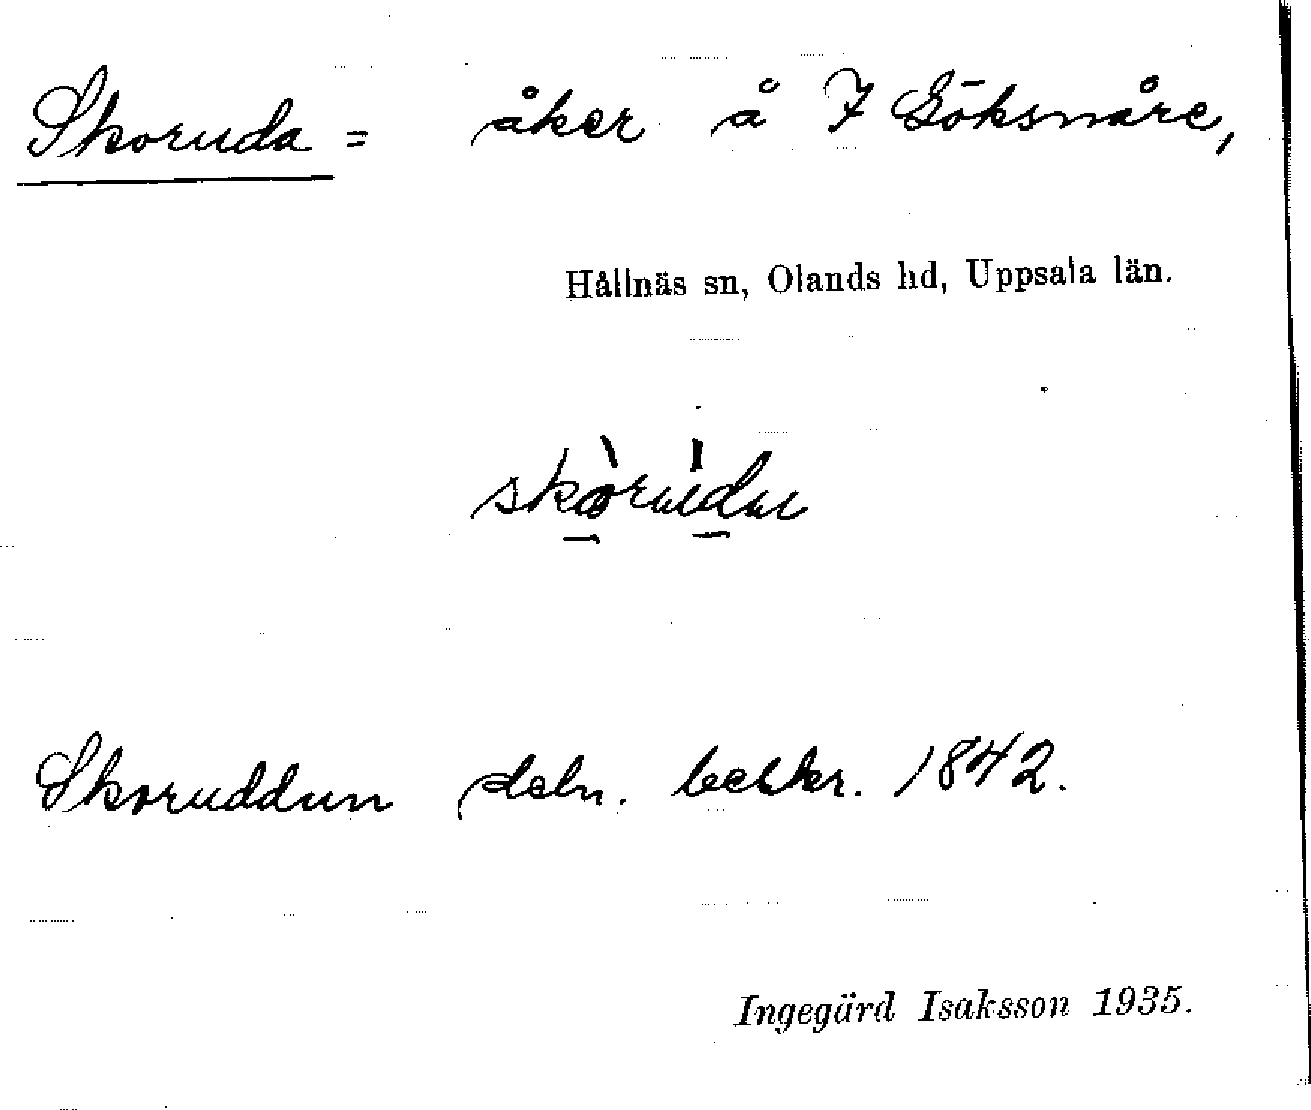 Skoruda = åker å 7 Göksnåre,
Hållnäs sn, Olands hd, Uppsala län.
Skoruddun deln. beskr. 1842.
Ingegärd Isaksson 1935.